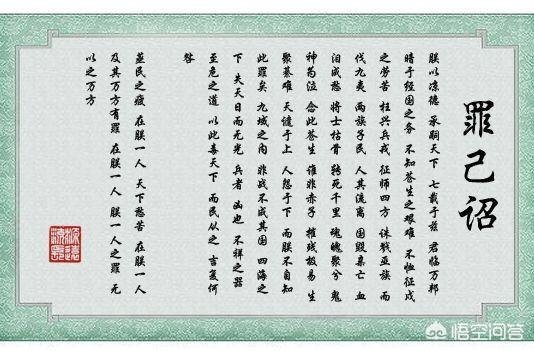 罪己诏
朕以凉德 承嗣天下 七载于兹 君临万邦
暗于经国之务 不知苍生之艰难 不恤征戍
之劳苦 狂兴兵戎 征师四方 诛戮亚族 而
伐九夷 两族子民 人其流离 国毁亲亡 血
泪成愁 将士枯骨 转死千里 魂魄聚兮 鬼
神为泣 念此苍生 谁非赤子 摧残极易 生
聚綦难 天谴于上 人怨于下 而朕不自知
此罪矣 九域之内 非战不成其国 四海之
下 失天日而无光 兵者 凶也 不祥之器
至危之道 以此毒天下 而民从之 吉复何
咎
蒸民之疲 在朕一人 天下愁苦 在朕一人
及其万方有罪 在朕一人 朕一人之罪 无
以之万方
悟空问答